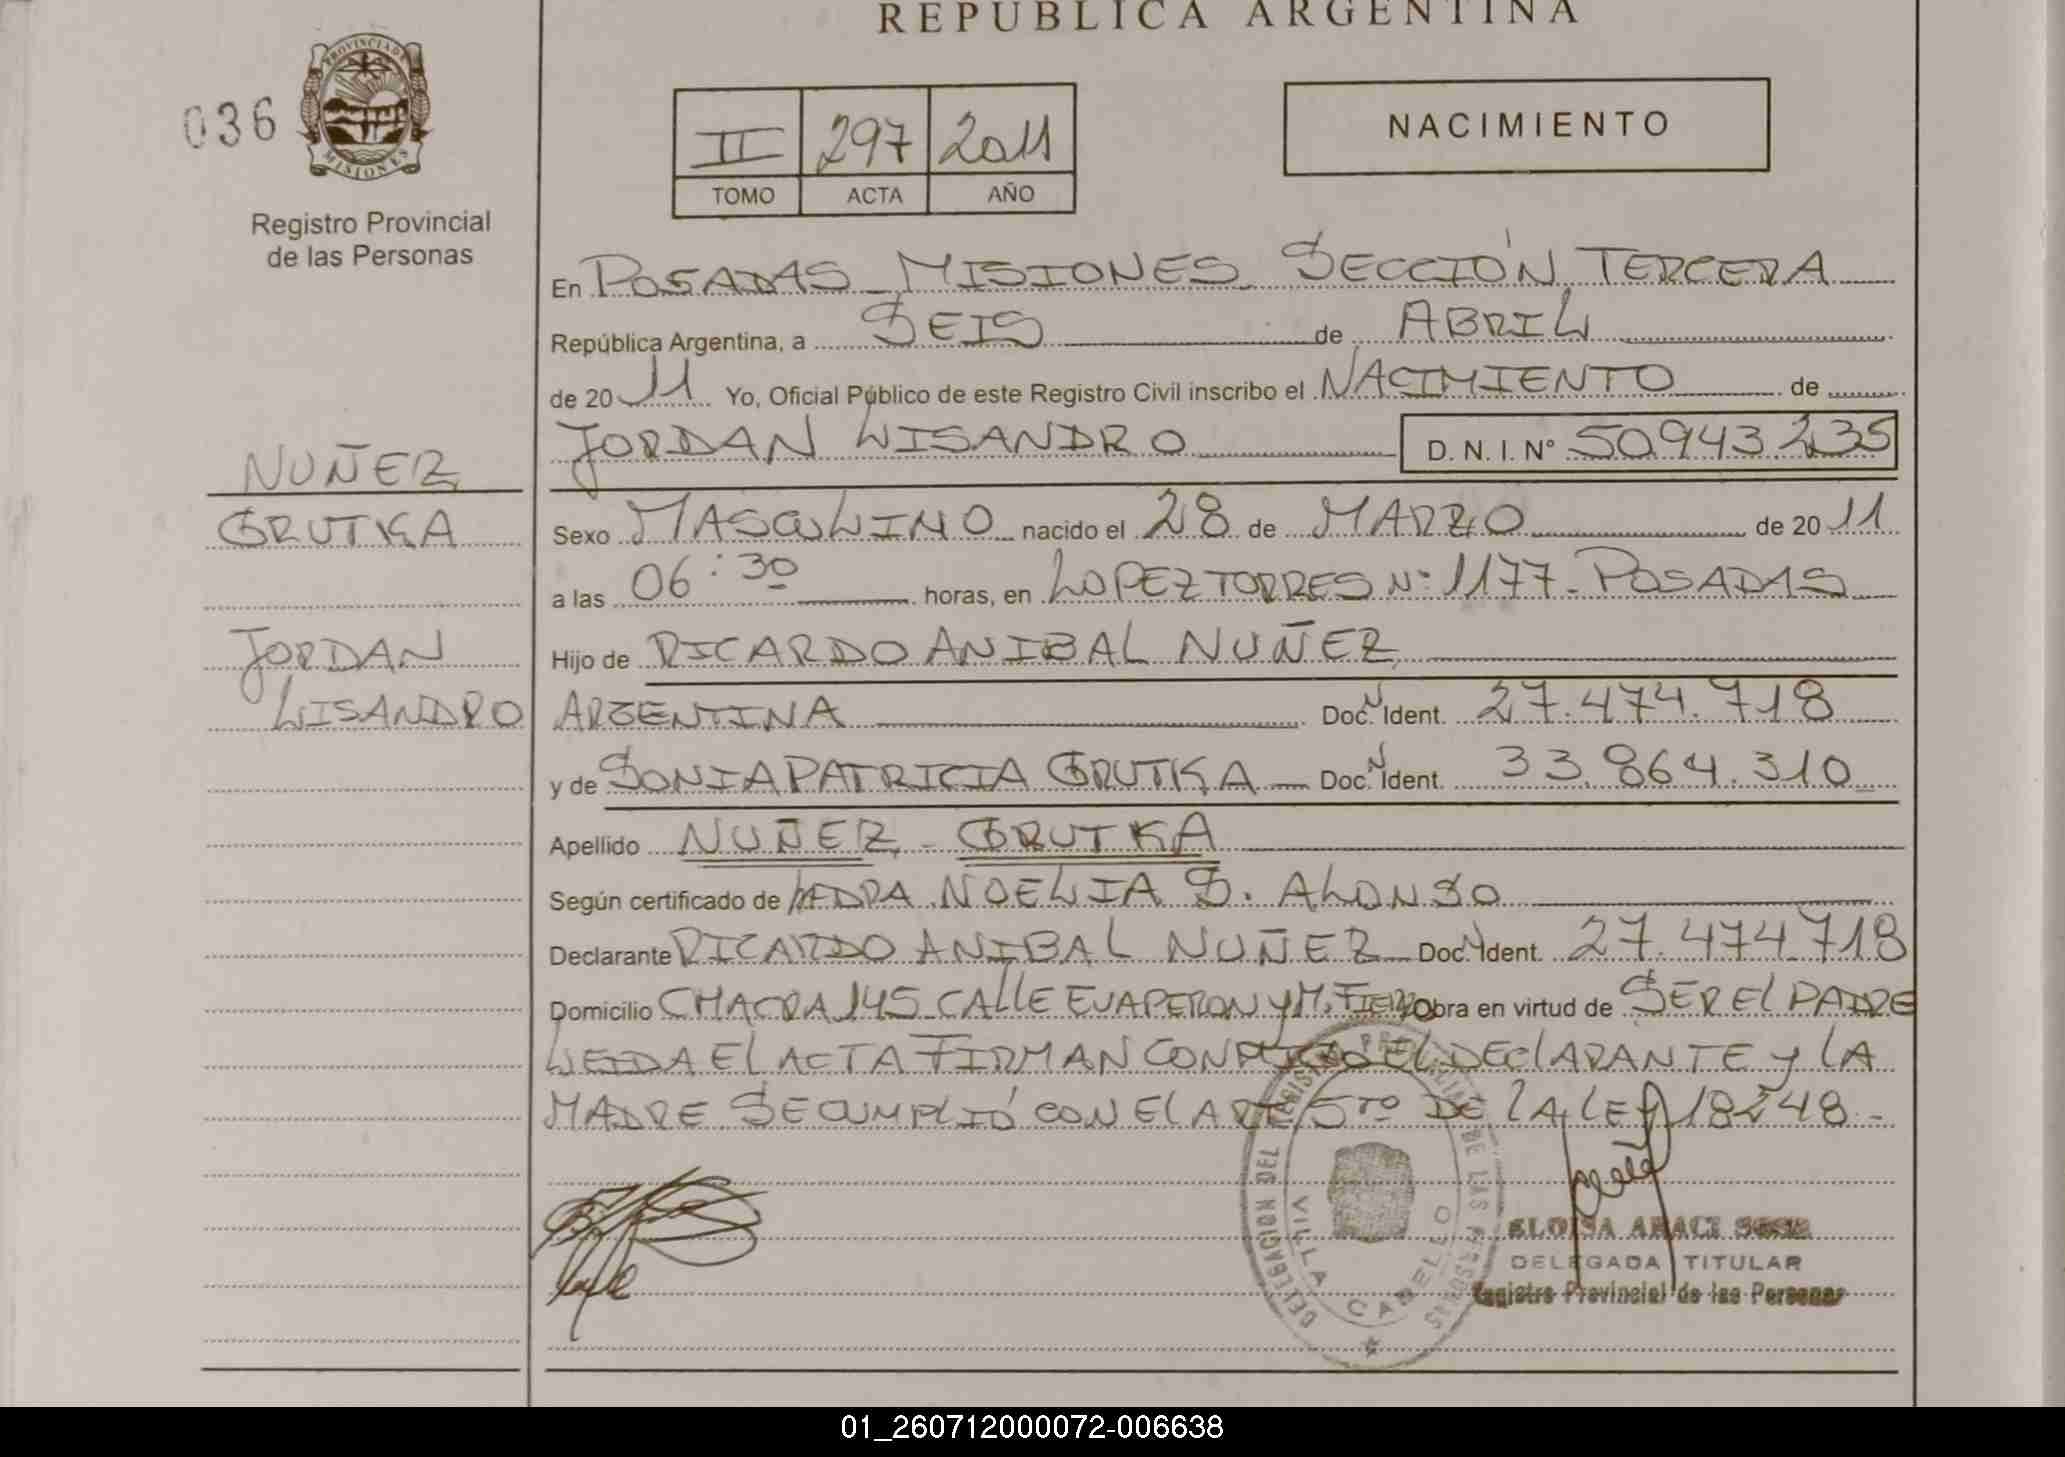 REPUBLICA ARGENTINA
036
PROVINCIA DE MISIONES
Registro Provincial
de las Personas
II 297 2011
TOMO ACTA AÑO
NACIMIENTO
En POSADAS - MISIONES - SECCIÓN TERCERA
República Argentina, a SEIS de ABRIL
de 2011 Yo, Oficial Público de este Registro Civil inscribo el NACIMIENTO de
JORDAN LISANDRO D. N. I. Nº 50.943.235
NUÑEZ
GRUTKA
JORDAN
LISANDRO
Sexo MASCULINO nacido el 28 de MARZO de 2011
a las 06:30 horas, en LOPEZ TORRES Nº 1177 - POSADAS
Hijo de RICARDO ANIBAL NUÑEZ
ARGENTINA Doc. N Ident. 27.474.718
y de SONIA PATRICIA GRUTKA Doc. N Ident. 33.864.310
Apellido NUÑEZ - GRUTKA
Según certificado de NOELIA S. ALONSO
Declarante RICARDO ANIBAL NUÑEZ Doc. N Ident. 27.474.718
Domicilio CHACRA 145 - CALLE EVA PERON Y M. FIERRO Obra en virtud de SER EL PADRE
LEIDA EL ACTA FIRMAN CONMIGO EL DECLARANTE Y LA
MADRE SE CUMPLIÓ CON EL ART 5TO DE LA LEY 18248 -
DELEGACION DEL REGISTRO PROVINCIAL DE LAS PERSONAS
VILLA CABELLO
ELOISA ARACI
DELEGADA TITULAR
Registro Provincial de las Personas
01_260712000072-006638